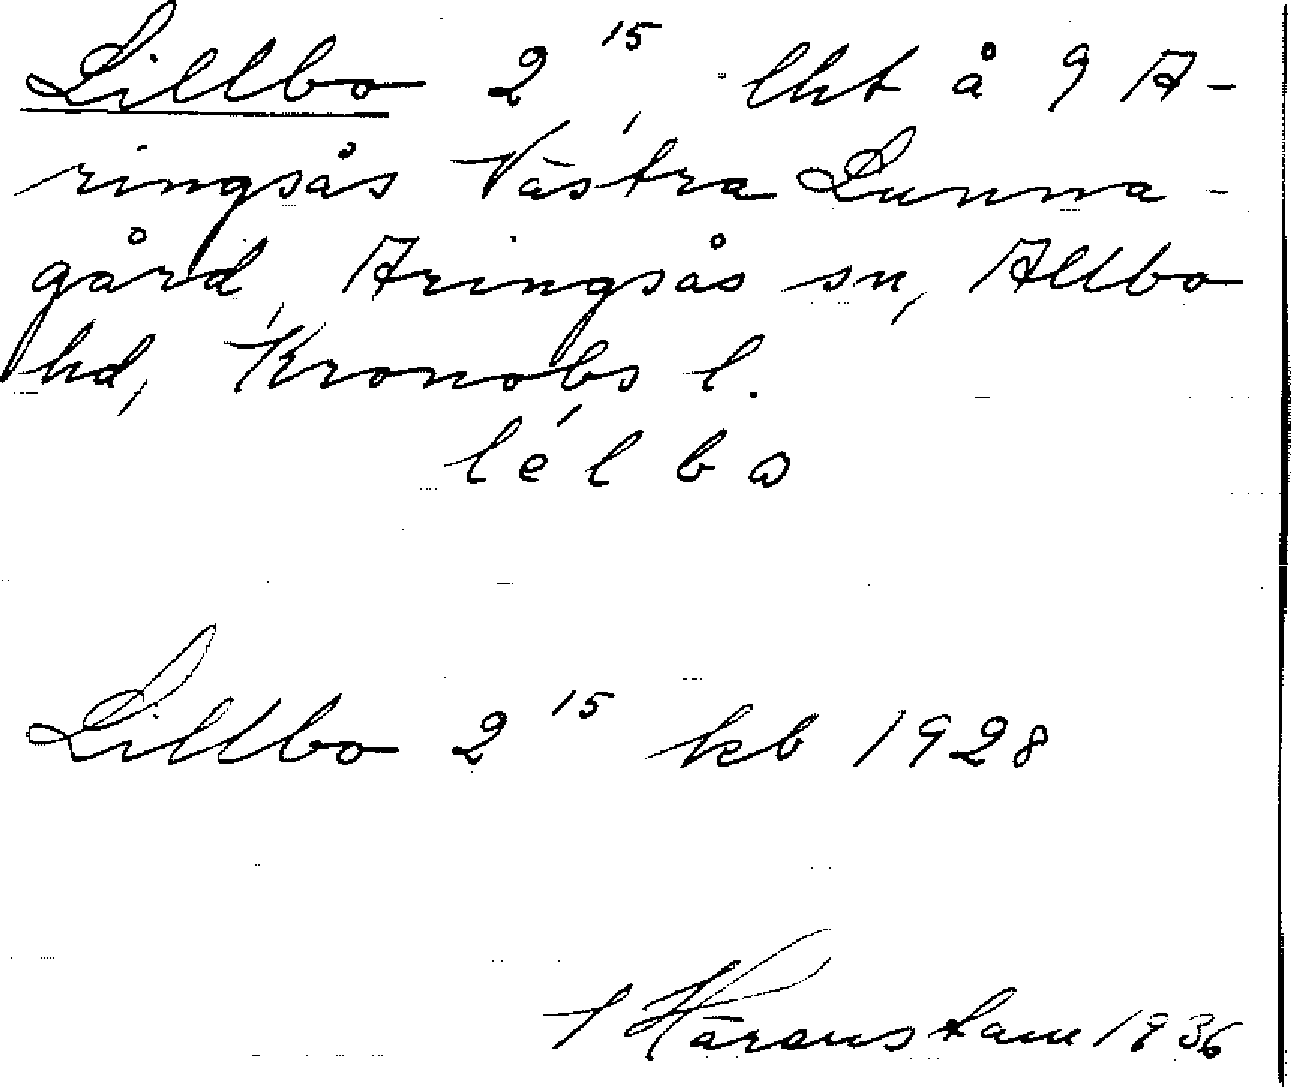 Lillbo 2¹⁵, lht å 9 A-
ringsås Västra Lunna-
gård, Aringsås sn, Allbo
hd, Kronobs l.
lélbo
Lillbo 2¹⁵ kb 1928
1936